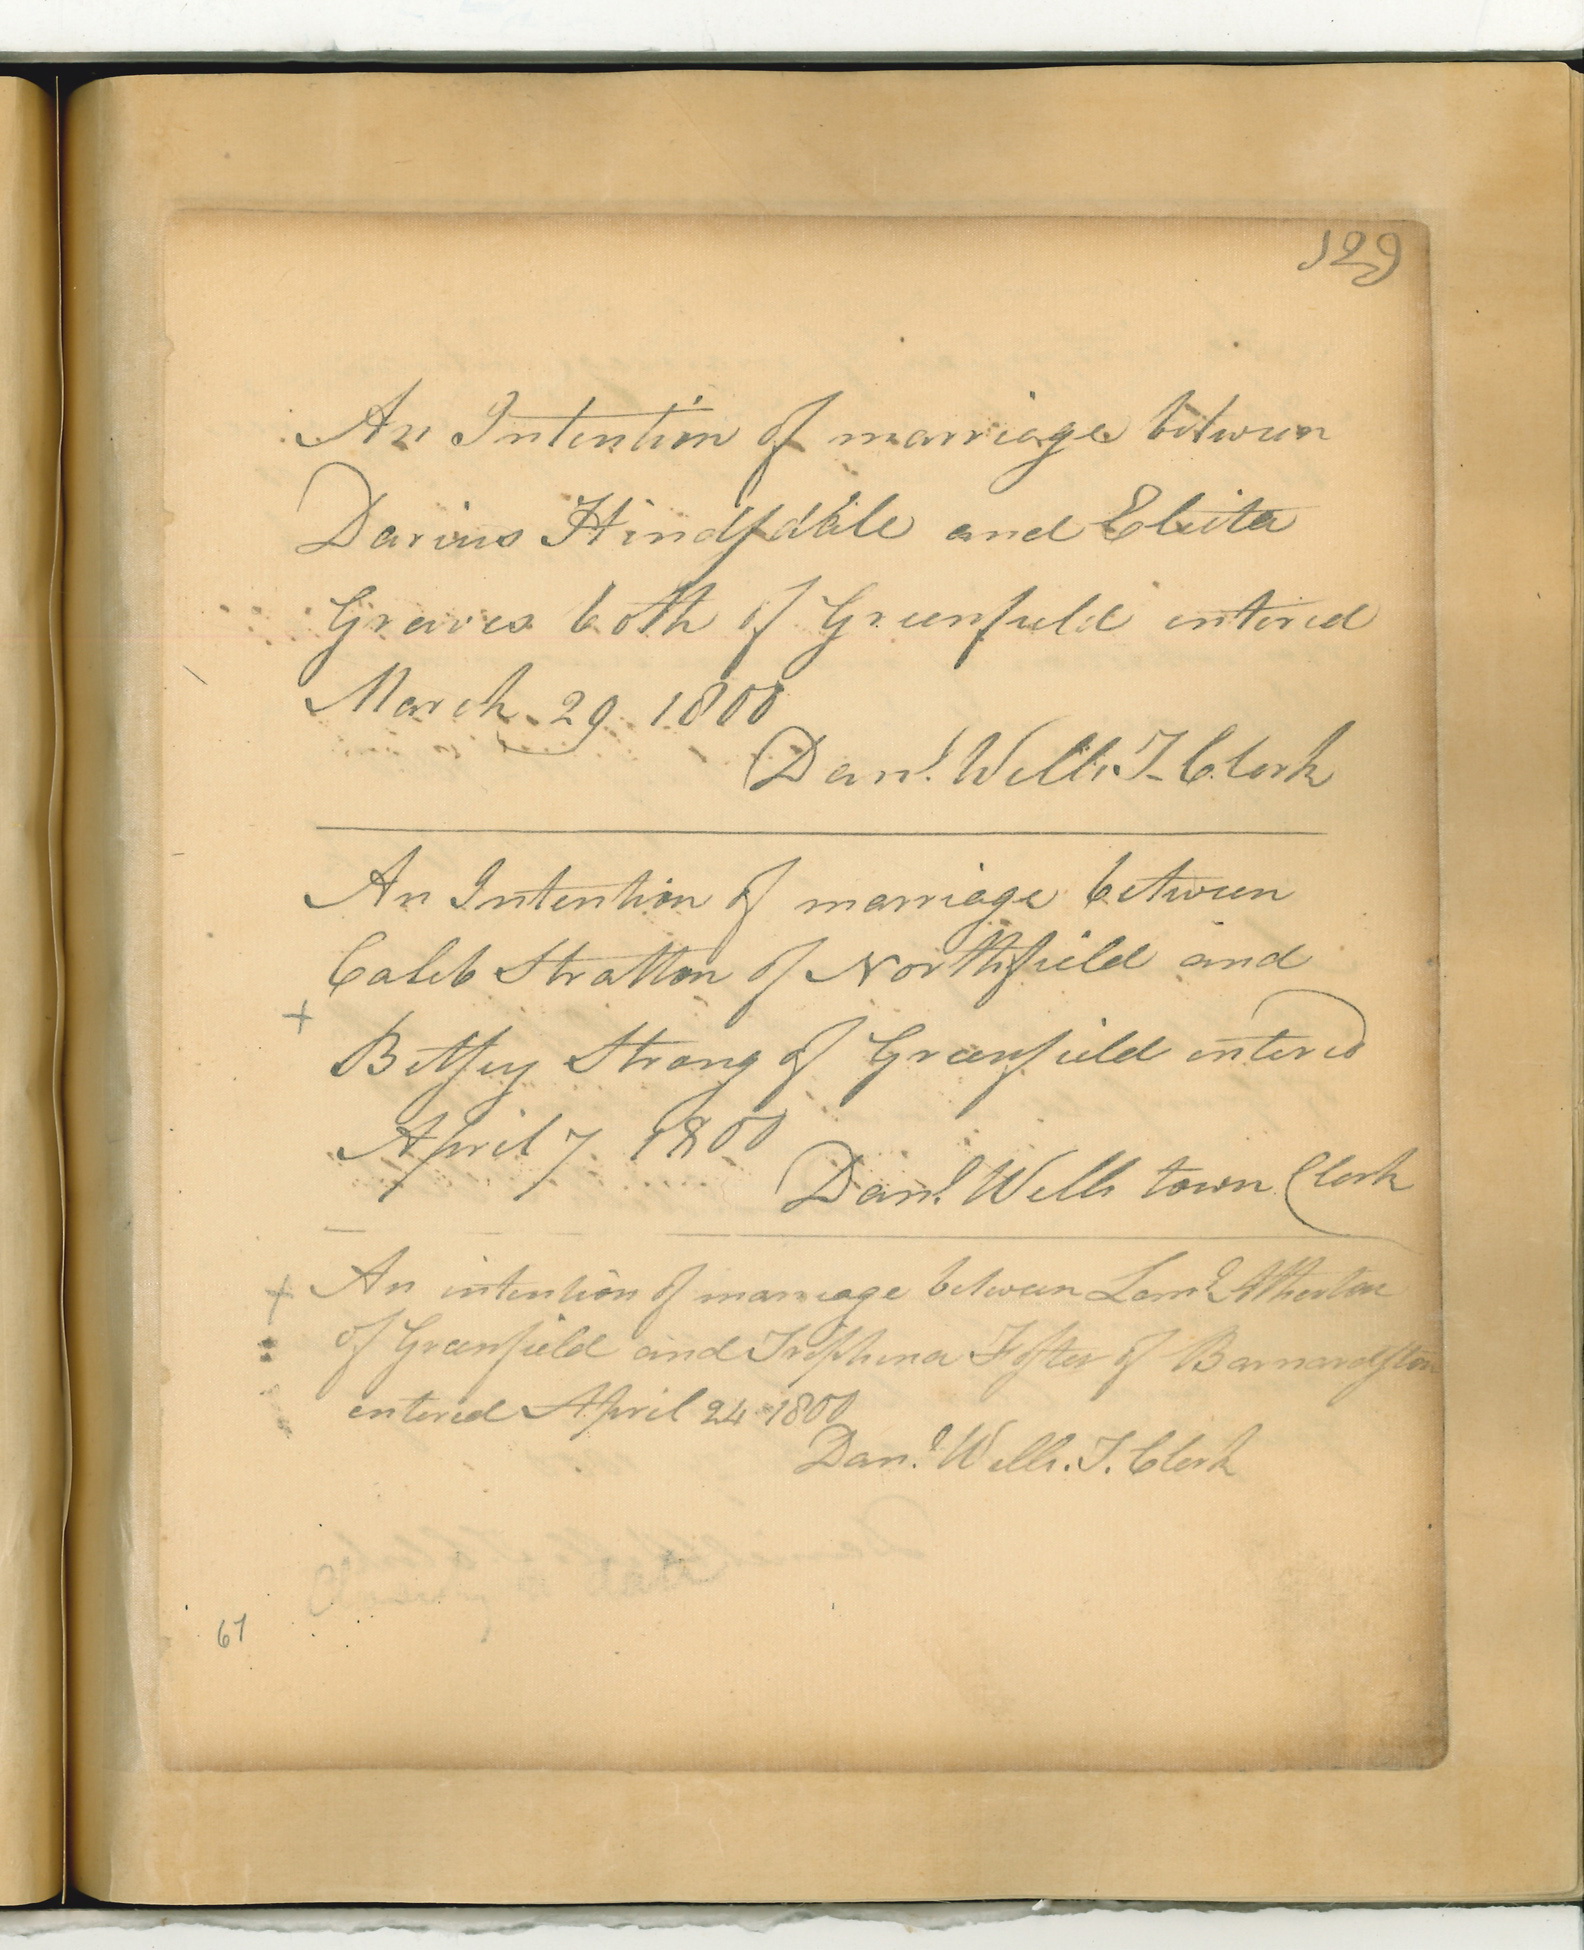 129
An Intention of marriage between
Darius Hindsdale and Electa
Graves both of Greenfield entered
March 29 1800
Danl. Wells T. Clerk
An Intention of marriage between
Caleb Stratton of Northfield and
+
Betsey Strong of Greenfield entered
April 7 1800
Danl. Wells town Clerk
+ An intention of marriage between Leml Atherton
of Greenfield and Triphena Foster of Barnardston
entered April 24 1800
Danl. Wells. T. Clerk
67